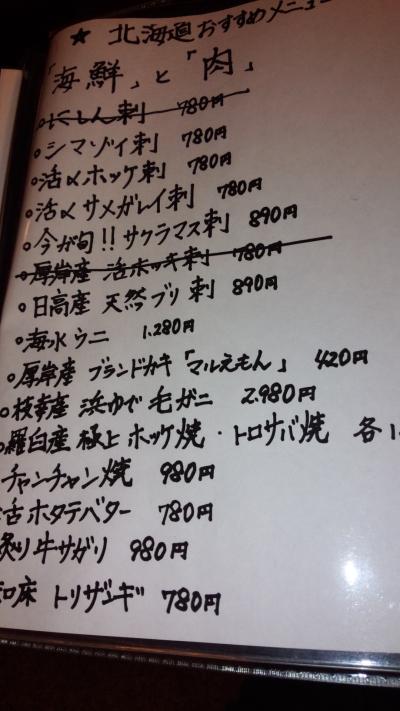 ★ 北海道おすすめメニュー
「海鮮」と「肉」
○にしん刺 780円
○シマゾイ刺 780円
○活〆ホッケ刺 780円
○活〆サメガレイ刺 780円
○今が旬!!サクラマス刺 890円
○厚岸産 活ホッキ刺 780円
○日高産 天然ブリ刺 890円
○海水ウニ 1.280円
○厚岸産 ブランドカキ「マルえもん」 420円
○枝幸産 浜ゆで毛ガニ 2.980円
○羅臼産 極上ホッケ焼・トロサバ焼 各
チャンチャン焼 980円
活ホタテバター 780円
炙り牛サガリ 980円
知床 トリザンギ 780円